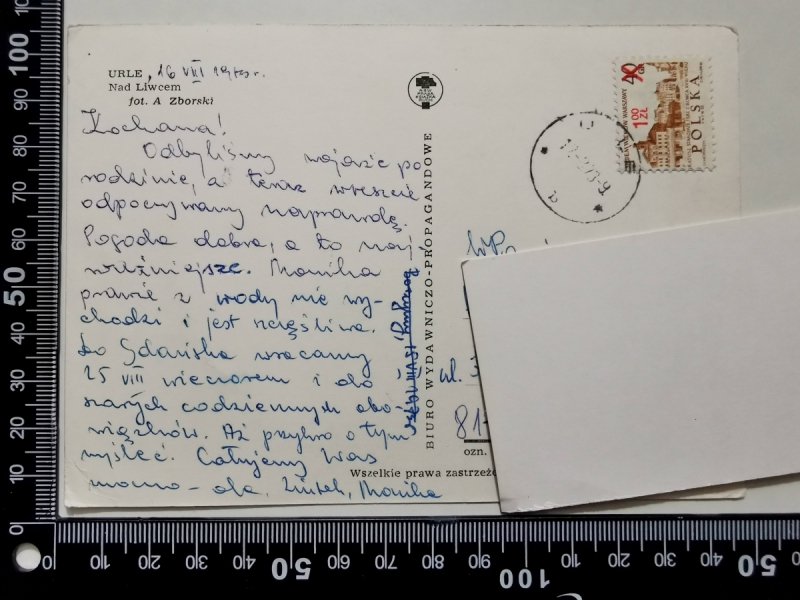 URLE, 16 VIII
Nad Liwcem
fot. A Zborski
Kochana!
Odbyliśmy wojaże po
rodzinie, a teraz wreszcie
odpoczywamy naprawdę.
Pogoda dobra, a to naj-
ważniejsze. Monika
prawie z wody nie wy-
chodzi i jest szczęśliwa.
Do Gdańska wracamy
25 VIII wieczorem i do
szarych codziennych obo-
wiązków. Aż przykro o tym
myśleć. Całujemy Was
Monika
BIURO WYDAWNICZO-PROPAGANDOWE
Wszelkie prawa zastrzeżo
40 GR
1 00 ZŁ
POLSKA
WP.
ul.
81-
ozn.
0 10 20 30 40 50 60 70 80 90 100
0 10 20 30 40 50 60 70 80 90 100 10 20 30 40